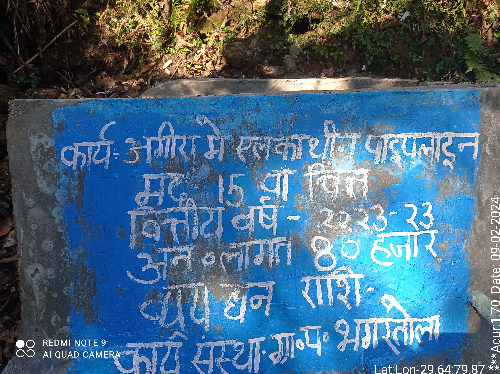 कार्य- अगीरा मे एलकाथीन पाइपलाइन
मद- 15 वा वित्त
वित्तीय वर्ष - 2223-23
अनु०लागत 80 हजार
व्यय धन राशि-
कार्य संस्था- ग्रा०प० भगरतोला
REDMI NOTE 9
AI QUAD CAMERA
Lat:Lon-29.64:79.87
Date: 09-02-2024